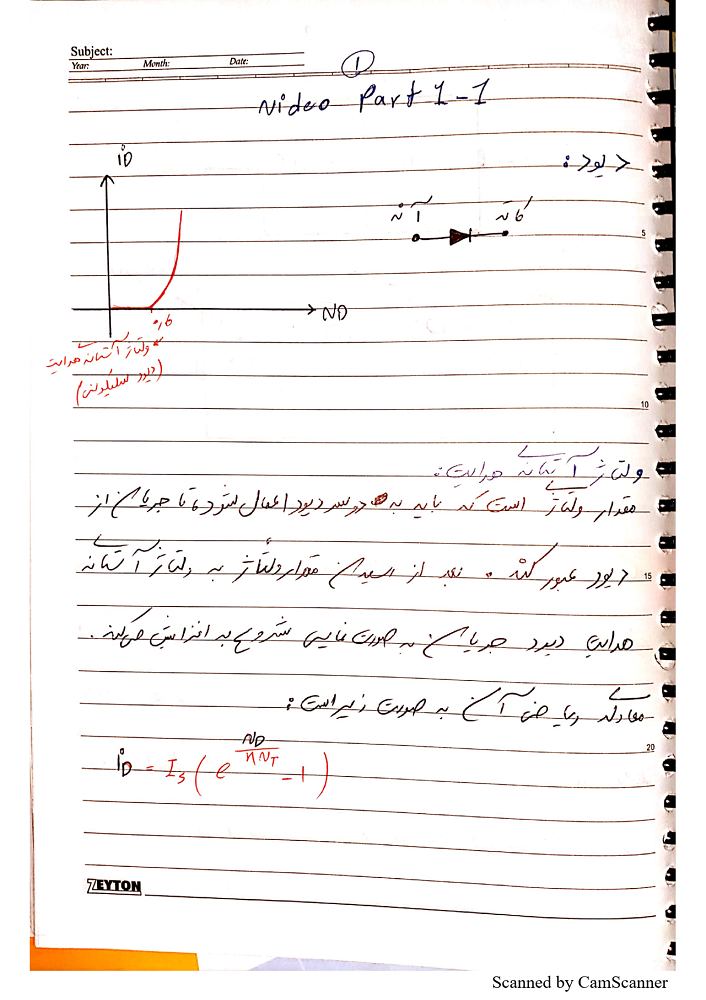 Subject:
Year: Month: Date:
1
Video Part 1-1
دیود:
iD
آند
کاتد
5
VD
0,6
ولتاژ آستانه هدایت
(دیود سیلیکونی)
10
ولتاژ آستانه هدایت:
مقدار ولتاژی است که باید به دو سر دیود اعمال شود تا جریان از
دیود عبور کند. بعد از رسیدن مقدار ولتاژ به ولتاژ آستانه
15
هدایت دیود جریان به صورت نمایی شروع به افزایش می‌کند.
معادله ریاضی آن به صورت زیر است:
20
iD = Is(e^(VD/nVT) -1)
ZEYTON
Scanned by CamScanner